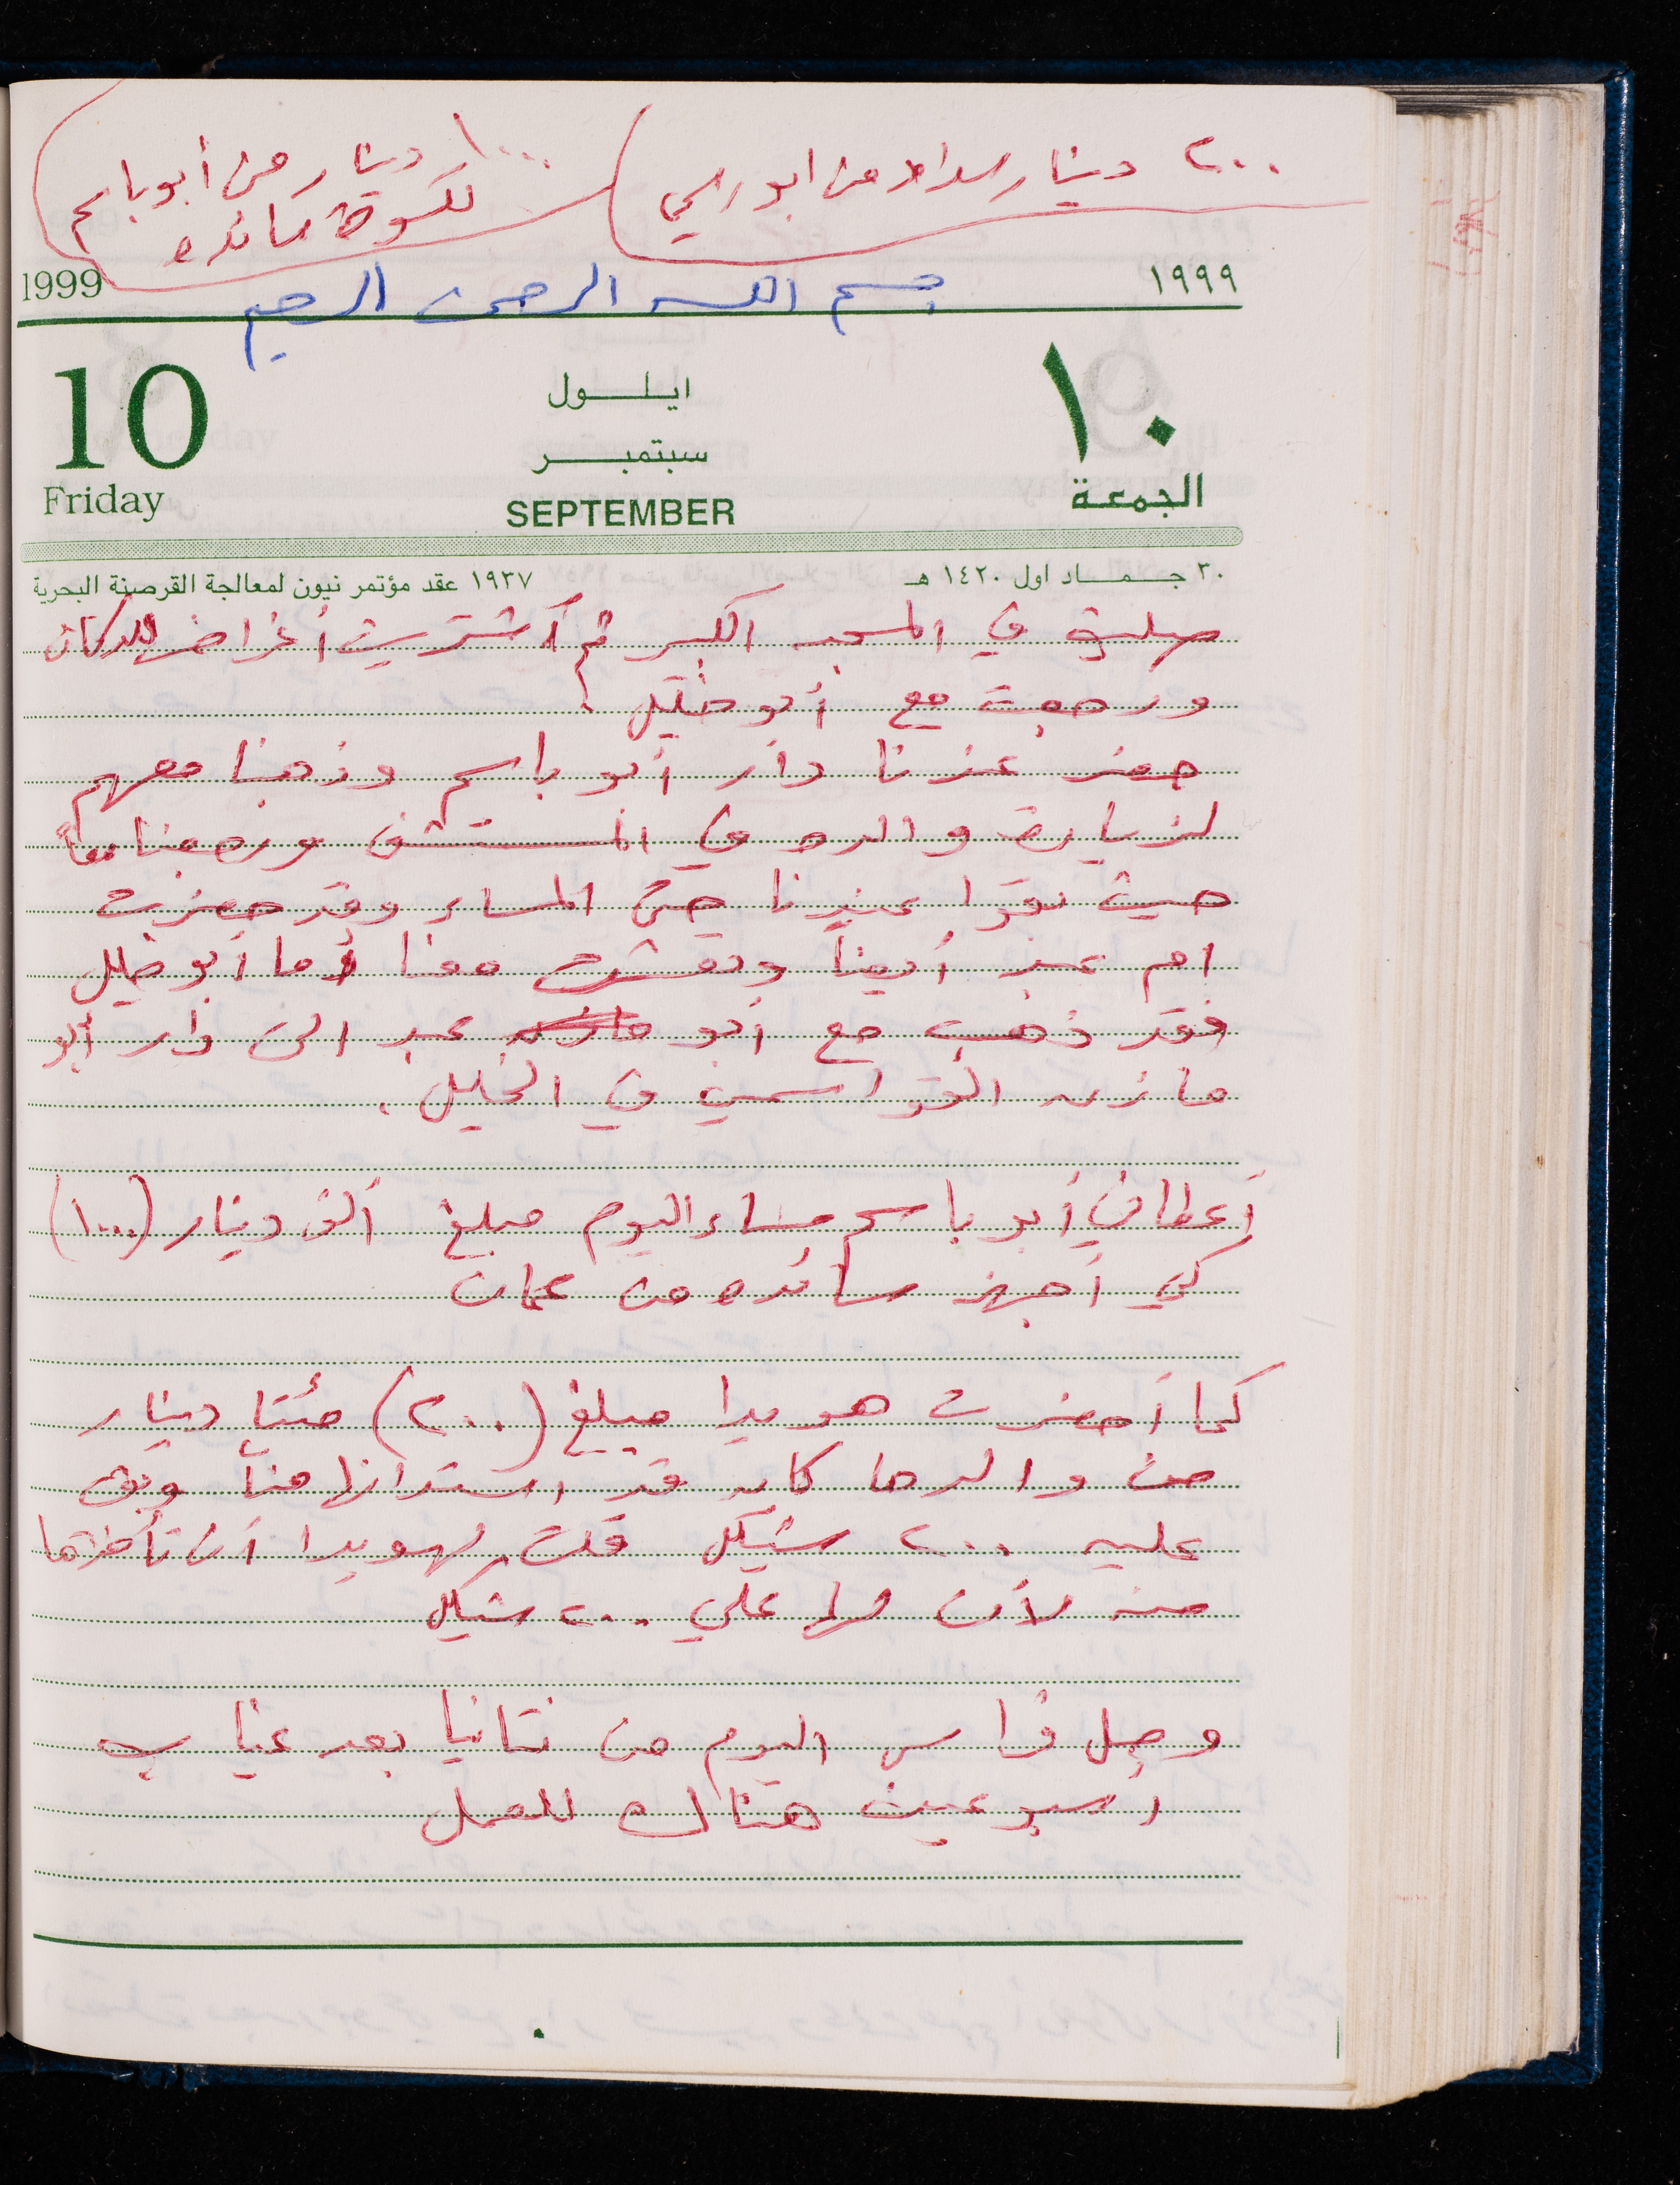 ٢٠٠ دينار سداد من ابو رامي
١٠٠٠ دينار من أبو باسم
لكسوة سائده
1999
١٩٩٩
بسم الله الرحمن الرحيم
10
ايلول
١٠
سبتمبر
Friday
SEPTEMBER
الجمعة
٣٠ جماد اول ١٤٢٠ هـ
١٩٣٧ عقد مؤتمر نيون لمعالجة القرصنة البحرية
صليت في المسجد الكبير ثم اشتريت أغراض للدكان
ورجعت مع أبو خليل .
حضر عندنا دار أبو باسم وذهبنا معهم
لزيارة والده في المستشفى ورجعنا معاً
حيث بقوا عندنا حتى المساء وقد حضرت
ام عبد أيضاً وتعشت معنا أما أبو خليل
فقد ذهب مع أبو عبد الى دار أبو
مازن القواسمي في الخليل .
أعطاني أبو باسم مساء اليوم مبلغ ألف دينار (١٠٠٠)
كي أجهز سائده من عمان
كما أحضرت هويدا مبلغ (٢٠٠) مئتا دينار
من والدها كان قد استدانها منا وبقي
عليه ٢٠٠ شيكل قلت لهويدا أن تأخذها
منه لأن لها علي ٢٠٠ شيكل
وصل فراس اليوم من نتانيا بعد غياب
أسبوعين هناك للعمل